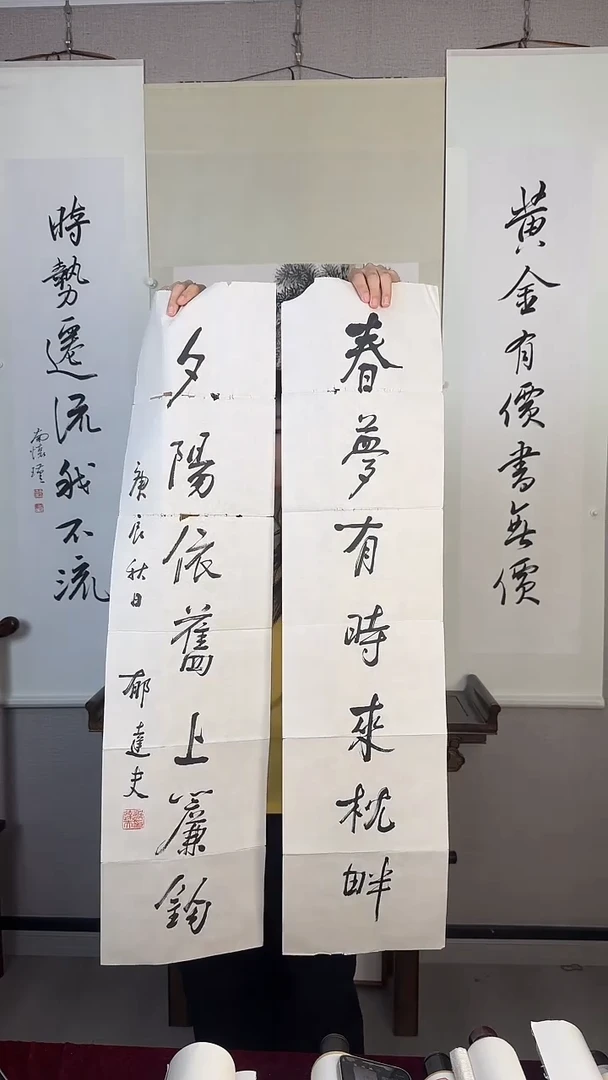 黄金有價書無價
春夢有時來枕畔
夕陽依舊上簾鈎
庚辰秋日
郁達夫
時勢遷流我不流
南懷瑾